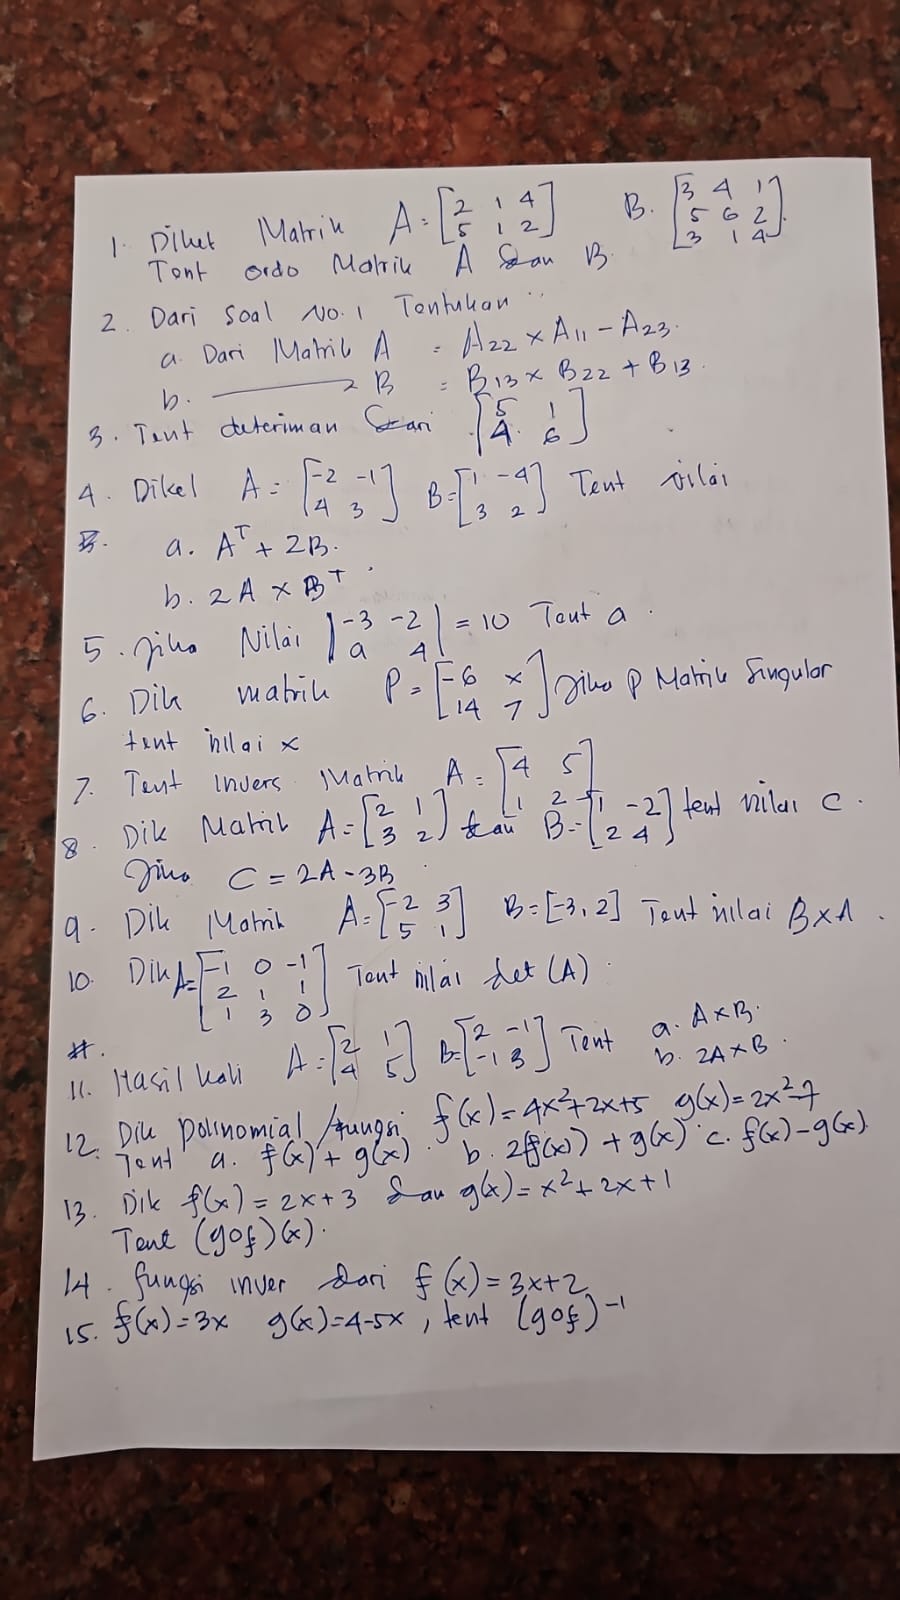 1. Diket Matrik A = [2 1 4; 5 1 2] B. [3 4 1; 5 6 2; 3 1 4].
Tent ordo Matrik A dan B.
2. Dari soal No. 1 Tentukan :
a. Dari Matrik A = A22 x A11 - A23.
b. ——— B = B13 x B22 + B13.
3. Tent determan dari [5 1; 4 6]
4. Diket A = [-2 -1; 4 3] B = [1 -4; 3 2] Tent nilai
a. A^T + 2B.
b. 2A x B^T.
5. Jika Nilai |-3 -2; a 4| = 10 Tent a.
6. Dik matrik P = [-6 x; 14 7] Jika P Matrik Singular
tent nilai x
7. Tent Invers Matrik A = [4 5; 1 2]
8. Dik Matrik A = [2 1; 3 2] dan B = [1 -2; 2 4] tent nilai C.
Jika C = 2A - 3B
9. Dik Matrik A = [-2 3; 5 1] B = [-3, 2] Tent nilai B x A.
10. Dik A = [-1 0 -1; 2 1 1; 1 3 0] Tent nilai det (A).
11. Hasil kali A = [2 1; 4 5] B = [2 -1; -1 3] Tent a. A x B.
b. 2A x B.
12. Dik polinomial / fungsi f(x) = 4x² + 2x + 5 g(x) = 2x² - 7
Tent a. f(x) + g(x). b. 2(f(x)) + g(x) c. f(x) - g(x).
13. Dik f(x) = 2x + 3 dan g(x) = x² + 2x + 1
Tent (gof)(x).
14. fungsi inver dari f(x) = 3x + 2
15. f(x) = 3x g(x) = 4 - 5x, tent (gof)^-1